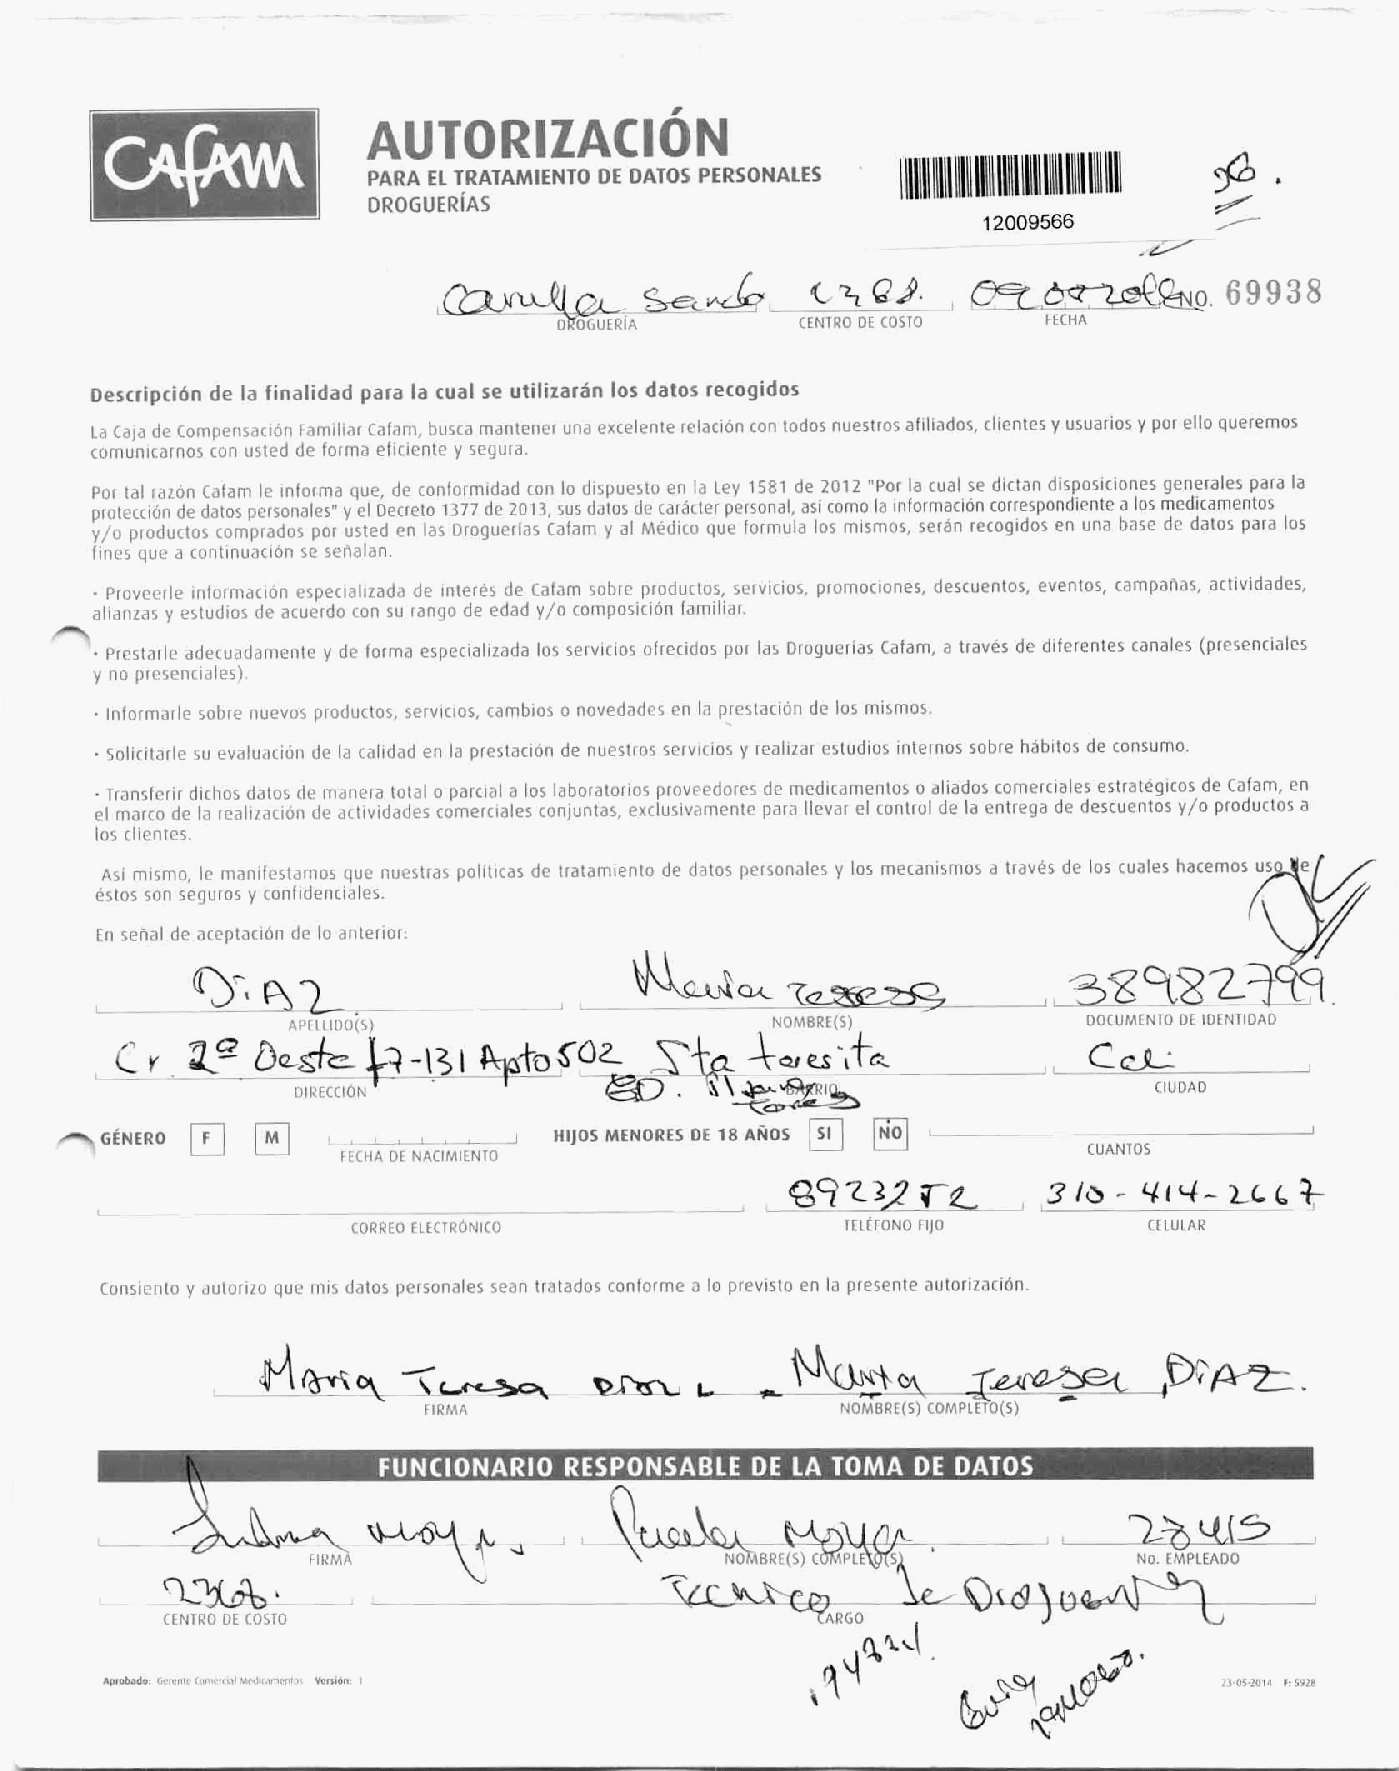 CAFAM
AUTORIZACIÓN
PARA EL TRATAMIENTO DE DATOS PERSONALES
DROGUERÍAS
12009566
NO. 69938
DROGUERÍA CENTRO DE COSTO FECHA
Descripción de la finalidad para la cual se utilizarán los datos recogidos
La Caja de Compensación Familiar Cafam, busca mantener una excelente relación con todos nuestros afiliados, clientes y usuarios y por ello queremos
comunicarnos con usted de forma eficiente y segura.
Por tal razón Cafam le informa que, de conformidad con lo dispuesto en la Ley 1581 de 2012 "Por la cual se dictan disposiciones generales para la
protección de datos personales" y el Decreto 1377 de 2013, sus datos de carácter personal, asi como la información correspondiente a los medicamentos
y/o productos comprados por usted en las Droguerías Cafam y al Médico que formula los mismos, serán recogidos en una base de datos para los
fines que a continuación se señalan.
· Proveerle información especializada de interés de Cafam sobre productos, servicios, promociones, descuentos, eventos, campañas, actividades,
alianzas y estudios de acuerdo con su rango de edad y/o composición familiar.
· Prestarle adecuadamente y de forma especializada los servicios ofrecidos por las Droguerías Cafam, a través de diferentes canales (presenciales
y no presenciales).
· Informarle sobre nuevos productos, servicios, cambios o novedades en la prestación de los mismos.
· Solicitarle su evaluación de la calidad en la prestación de nuestros servicios y realizar estudios internos sobre hábitos de consumo.
· Transferir dichos datos de manera total o parcial a los laboratorios proveedores de medicamentos o aliados comerciales estratégicos de Cafam, en
el marco de la realización de actividades comerciales conjuntas, exclusivamente para llevar el control de la entrega de descuentos y/o productos a
los clientes.
Así mismo, le manifestamos que nuestras políticas de tratamiento de datos personales y los mecanismos a través de los cuales hacemos uso de
éstos son seguros y confidenciales.
En señal de aceptación de lo anterior:
DiAZ Maria Teresa 38982799
APELLIDO(S) NOMBRE(S) DOCUMENTO DE IDENTIDAD
Cr 2ª Oeste 17-131 Apto 502 Sta teresita Cali
DIRECCIÓN BARRIO CIUDAD
GÉNERO F M HIJOS MENORES DE 18 AÑOS SI NO
FECHA DE NACIMIENTO CUANTOS
310-414-2667
CORREO ELECTRÓNICO TELÉFONO FIJO CELULAR
Consiento y autorizo que mis datos personales sean tratados conforme a lo previsto en la presente autorización.
Maria Teresa Maria Teresa DiAZ.
FIRMA NOMBRE(S) COMPLETO(S)
FUNCIONARIO RESPONSABLE DE LA TOMA DE DATOS
Moya 28415
FIRMA NOMBRE(S) COMPLETO(S) No. EMPLEADO
Tecnico de Drogueria
CENTRO DE COSTO CARGO
Aprobado: Gerente Comercial Medicamentos Versión: 1 23-05-2014 F: 5928